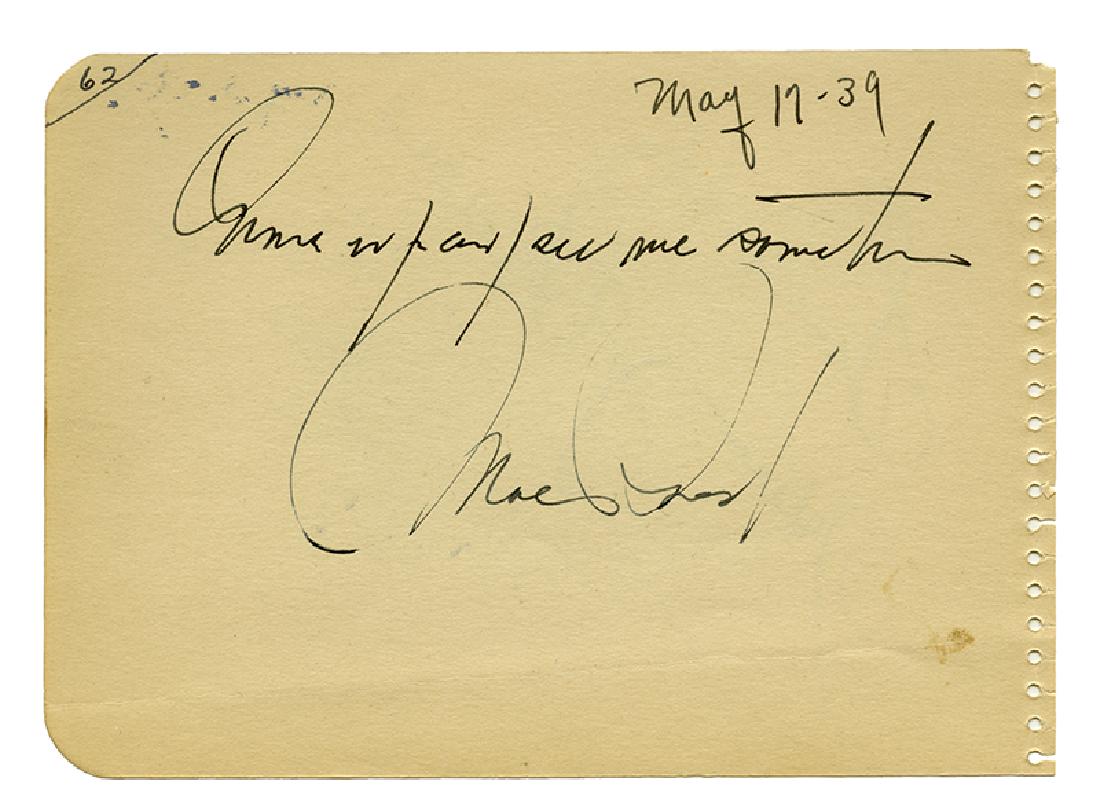 62
May 17-39
Come up and see me sometime
Mae West